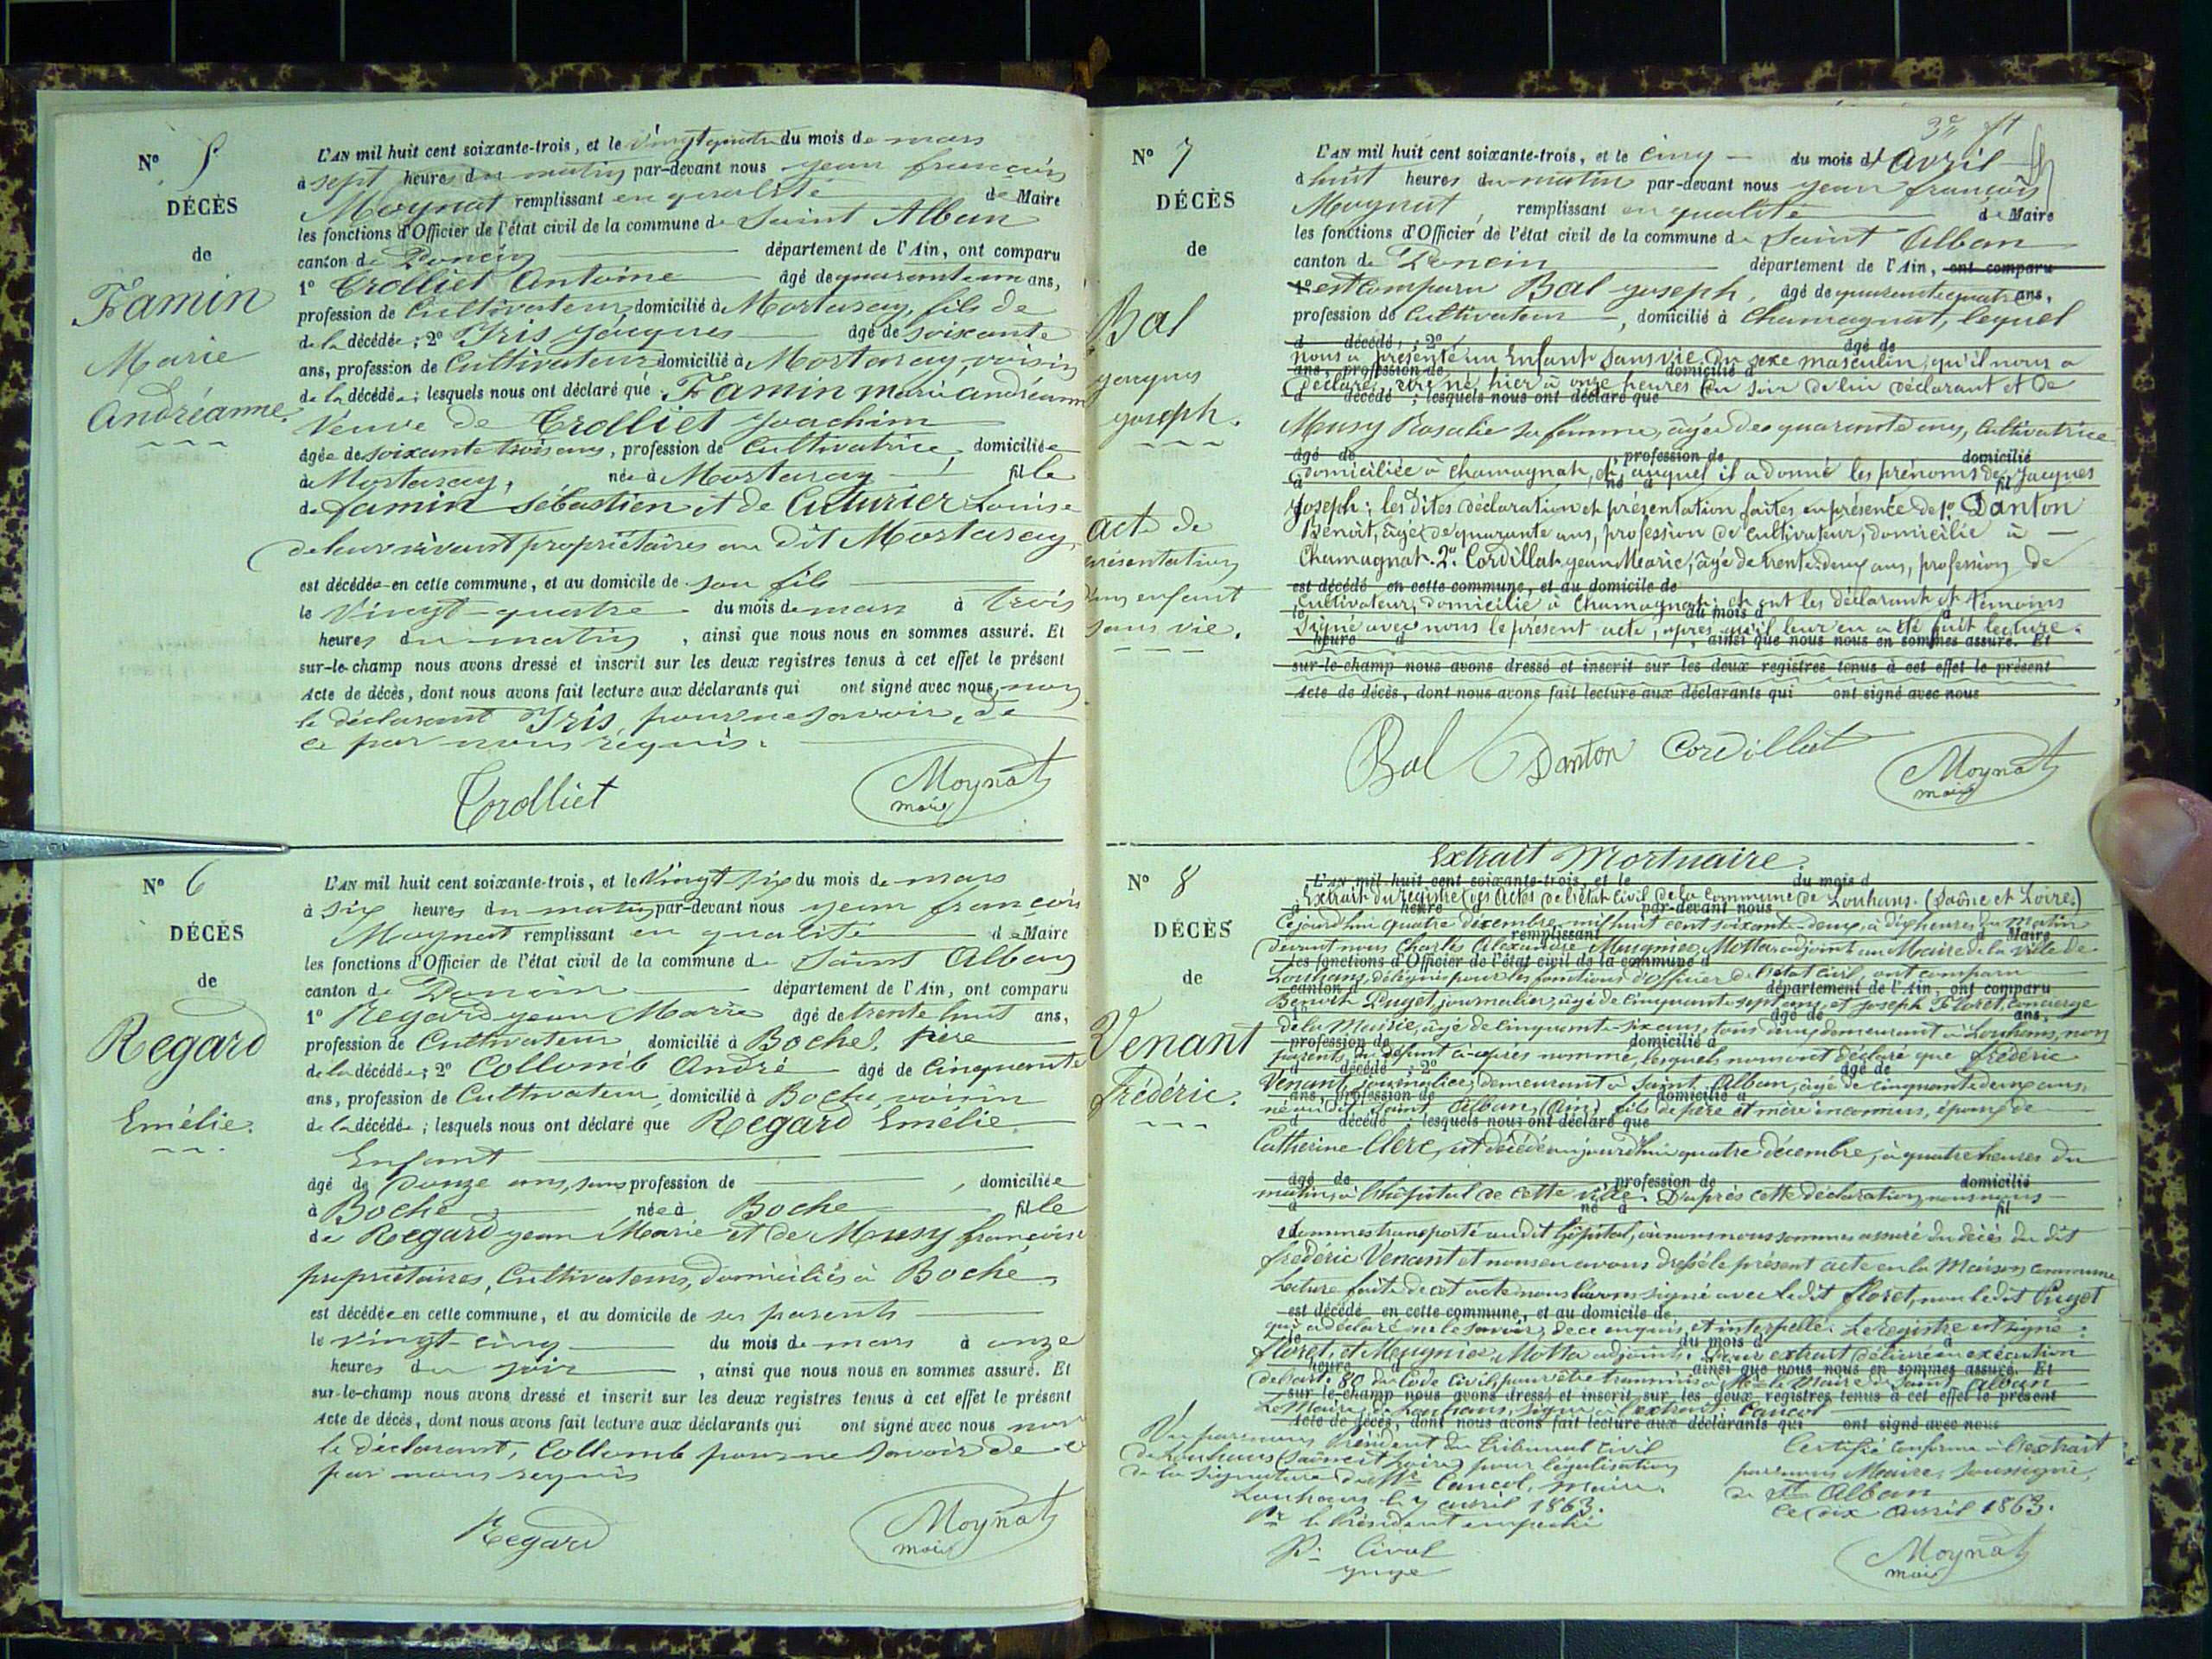 N° 5
DÉCÈS
de
Famin
Marie
Andréanne
L'AN mil huit cent soixante-trois, et le vingt quatre du mois de mars
à sept heures du matin par-devant nous jean françois
Moynat remplissant en qualité de Maire
les fonctions d'Officier de l'état civil de la commune de Saint Alban
canton de Poncin département de l'Ain, ont comparu
1° Trolliet Antoine âgé de quarante un ans,
profession de Cultivateur domicilié à Mortaray, fils de
de la décédée; 2° Iris jacques âgé de soixante
ans, profession de Cultivateur domicilié à Mortaray, voisin
de la décédée; lesquels nous ont déclaré que Famin marie andréanne
Veuve de Trolliet Joachim
âgée de soixante trois ans, profession de Cultivatrice, domiciliée
à Mortaray, née à Mortaray fille
de famin Sébastien et de Cuturier Louise
de leur vivant propriétaires au dit Mortaray
est décédée en cette commune, et au domicile de son fils
le Vingt-quatre du mois de mars à trois
heures du matin, ainsi que nous nous en sommes assuré. Et
sur-le-champ nous avons dressé et inscrit sur les deux registres tenus à cet effet le présent
Acte de décès, dont nous avons fait lecture aux déclarants qui ont signé avec nous, non
le déclarant Iris, pour ne savoir, de
ce par nous réquis.
Trolliet Moynat
maire
N° 6
DÉCÈS
de
Regard
Emélie.
L'AN mil huit cent soixante-trois, et le Vingt six du mois de mars
à six heures du matin par-devant nous jean françois
Moynat remplissant en qualité de Maire
les fonctions d'Officier de l'état civil de la commune de Saint Alban
canton de Poncin département de l'Ain, ont comparu
1° Regard jean Marie âgé de trente huit ans,
profession de Cultivateur domicilié à Boche, père
de la décédée; 2° Collomb André âgé de Cinquante
ans, profession de Cultivateur, domicilié à Boche, voisin
de la décédée; lesquels nous ont déclaré que Regard Emélie
Enfant
âgé de Douze ans, sans profession de , domiciliée
à Boche née à Boche fille
de Regard jean Marie et de Musy françoise
propriétaires, Cultivateurs, domiciliés à Boche
est décédée en cette commune, et au domicile de ses parents
le vingt-cinq du mois de mars à onze
heures du soir, ainsi que nous nous en sommes assuré. Et
sur-le-champ nous avons dressé et inscrit sur les deux registres tenus à cet effet le présent
Acte de décès, dont nous avons fait lecture aux déclarants qui ont signé avec nous non
le déclarant, Collomb pour ne savoir de ce
par nous requis
Regard Moynat
maire
3e ft
N° 7
DÉCÈS
de
Bal
jacques
joseph.
Acte de
présentation
d'un enfant
sans vie.
L'AN mil huit cent soixante-trois, et le Cinq du mois d'Avril
à huit heures du matin par-devant nous jean françois
Moynat, remplissant en qualité de Maire
les fonctions d'Officier de l'état civil de la commune de Saint Alban
canton de Poncin département de l'Ain, ont comparu
1° est comparu Bal joseph, âgé de quarante quatre ans,
profession de Cultivateur, domicilié à Chamagnat, lequel
d décédé; 2° âgé de
nous a présenté un Enfant sans vie, du sexe masculin, qu'il nous a
ans, profession de domicilié à
déclaré être né hier à onze heures du soir de lui déclarant et de
d décédé; lesquels nous ont déclaré que
Musy Rosalie sa femme, âgée de quarante ans, Cultivatrice
âgé de profession de domicilié
domiciliée à Chamagnat, et auquel il a donné les prénoms de Jacques
à né à fil
Joseph; les dites déclaration et présentation faites en présence de 1° Danton
Benoît, âgé de quarante ans, profession de Cultivateur, domicilié à
Chamagnat. 2° Cordillat jean Marie, âgé de trente deux ans, profession de
est décédé en cette commune, et au domicile de
Cultivateur, domicilié à Chamagnat; et ont les déclarant et témoins
le du mois d à
signé avec nous le présent acte, après qu'il leur en a été fait lecture.
heure d , ainsi que nous nous en sommes assuré. Et
sur-le-champ nous avons dressé et inscrit sur les deux registres tenus à cet effet le présent
Acte de décès, dont nous avons fait lecture aux déclarants qui ont signé avec nous
Bal Danton Cordillat Moynat
maire
Extrait Mortuaire
N° 8
DÉCÈS
de
Venant
Frédéric.
L'AN mil huit cent soixante-trois, et le du mois d
Extrait du registre des Actes de l'état Civil de la Commune de Louhans. (Saône et Loire.)
à heure d par-devant nous
Cejourd'hui quatre décembre mil huit cent soixante-deux, à dix heures du Matin
remplissant d Maire
devant nous Charles Alexandre Meugnier Motta adjoint au Maire de la ville de
les fonctions d'Officier de l'état civil de la commune d
Louhans, délégué pour les fonctions d'Officier de l'état Civil, ont comparu
canton d département de l'Ain, ont comparu
Benoît Puget, journalier, âgé de cinquante sept ans, et joseph Floret, concierge
1° âgé de ans,
de la Mairie, âgé de cinquante-six ans, tous deux demeurant à Louhans, non
profession de domicilié à
parents du défunt ci-après nommé, lesquels nous ont déclaré que frédéric
d décédé; 2° âgé de
Venant, journalier, demeurant à Saint Alban, âgé de cinquante deux ans,
ans, profession de domicilié à
né au dit Saint Alban (Ain) fils de père et mère inconnus, époux de
d décédé; lesquels nous ont déclaré que
Catherine Clerc, est décédé aujourd'hui quatre décembre, à quatre heures du
âgé de profession de domicilié
matin, à l'hôpital de cette ville. D'après cette déclaration, nous nous
à né à fil
sommes transporté au dit hôpital, où nous nous sommes assuré du décès du dit
frédéric Venant et nous en avons dressé le présent acte en la Maison commune
Lecture faite de cet acte nous l'avons signé avec ledit floret, non ledit Puget
est décédé en cette commune, et au domicile de
qui a déclaré ne le savoir, de ce enquis et interpellé. Le registre est signé:
le du mois d à
floret, et Meugnier Motta adjoint. Pour extrait délivré en exécution
heure d ainsi que nous nous en sommes assuré. Et
de l'art. 80 du Code Civil, pour être transmis à Mr le Maire de Saint Alban
sur-le-champ nous avons dressé et inscrit sur les deux registres tenus à cet effet le présent
Le Maire de Louhans, signé à l'extrait: Cancal
Acte de décès, dont nous avons fait lecture aux déclarants qui ont signé avec nous
Vu par nous Président du Tribunal Civil
de Louhans (Saône et Loire) pour légalisation
de la signature de Mr Cancal, Maire.
Louhans le 7 avril 1863.
Pr le Président empêché
juge
Certifié conforme à l'extrait
par nous Maire, soussigné,
de St Alban
le dix avril 1863.
Moynat
maire